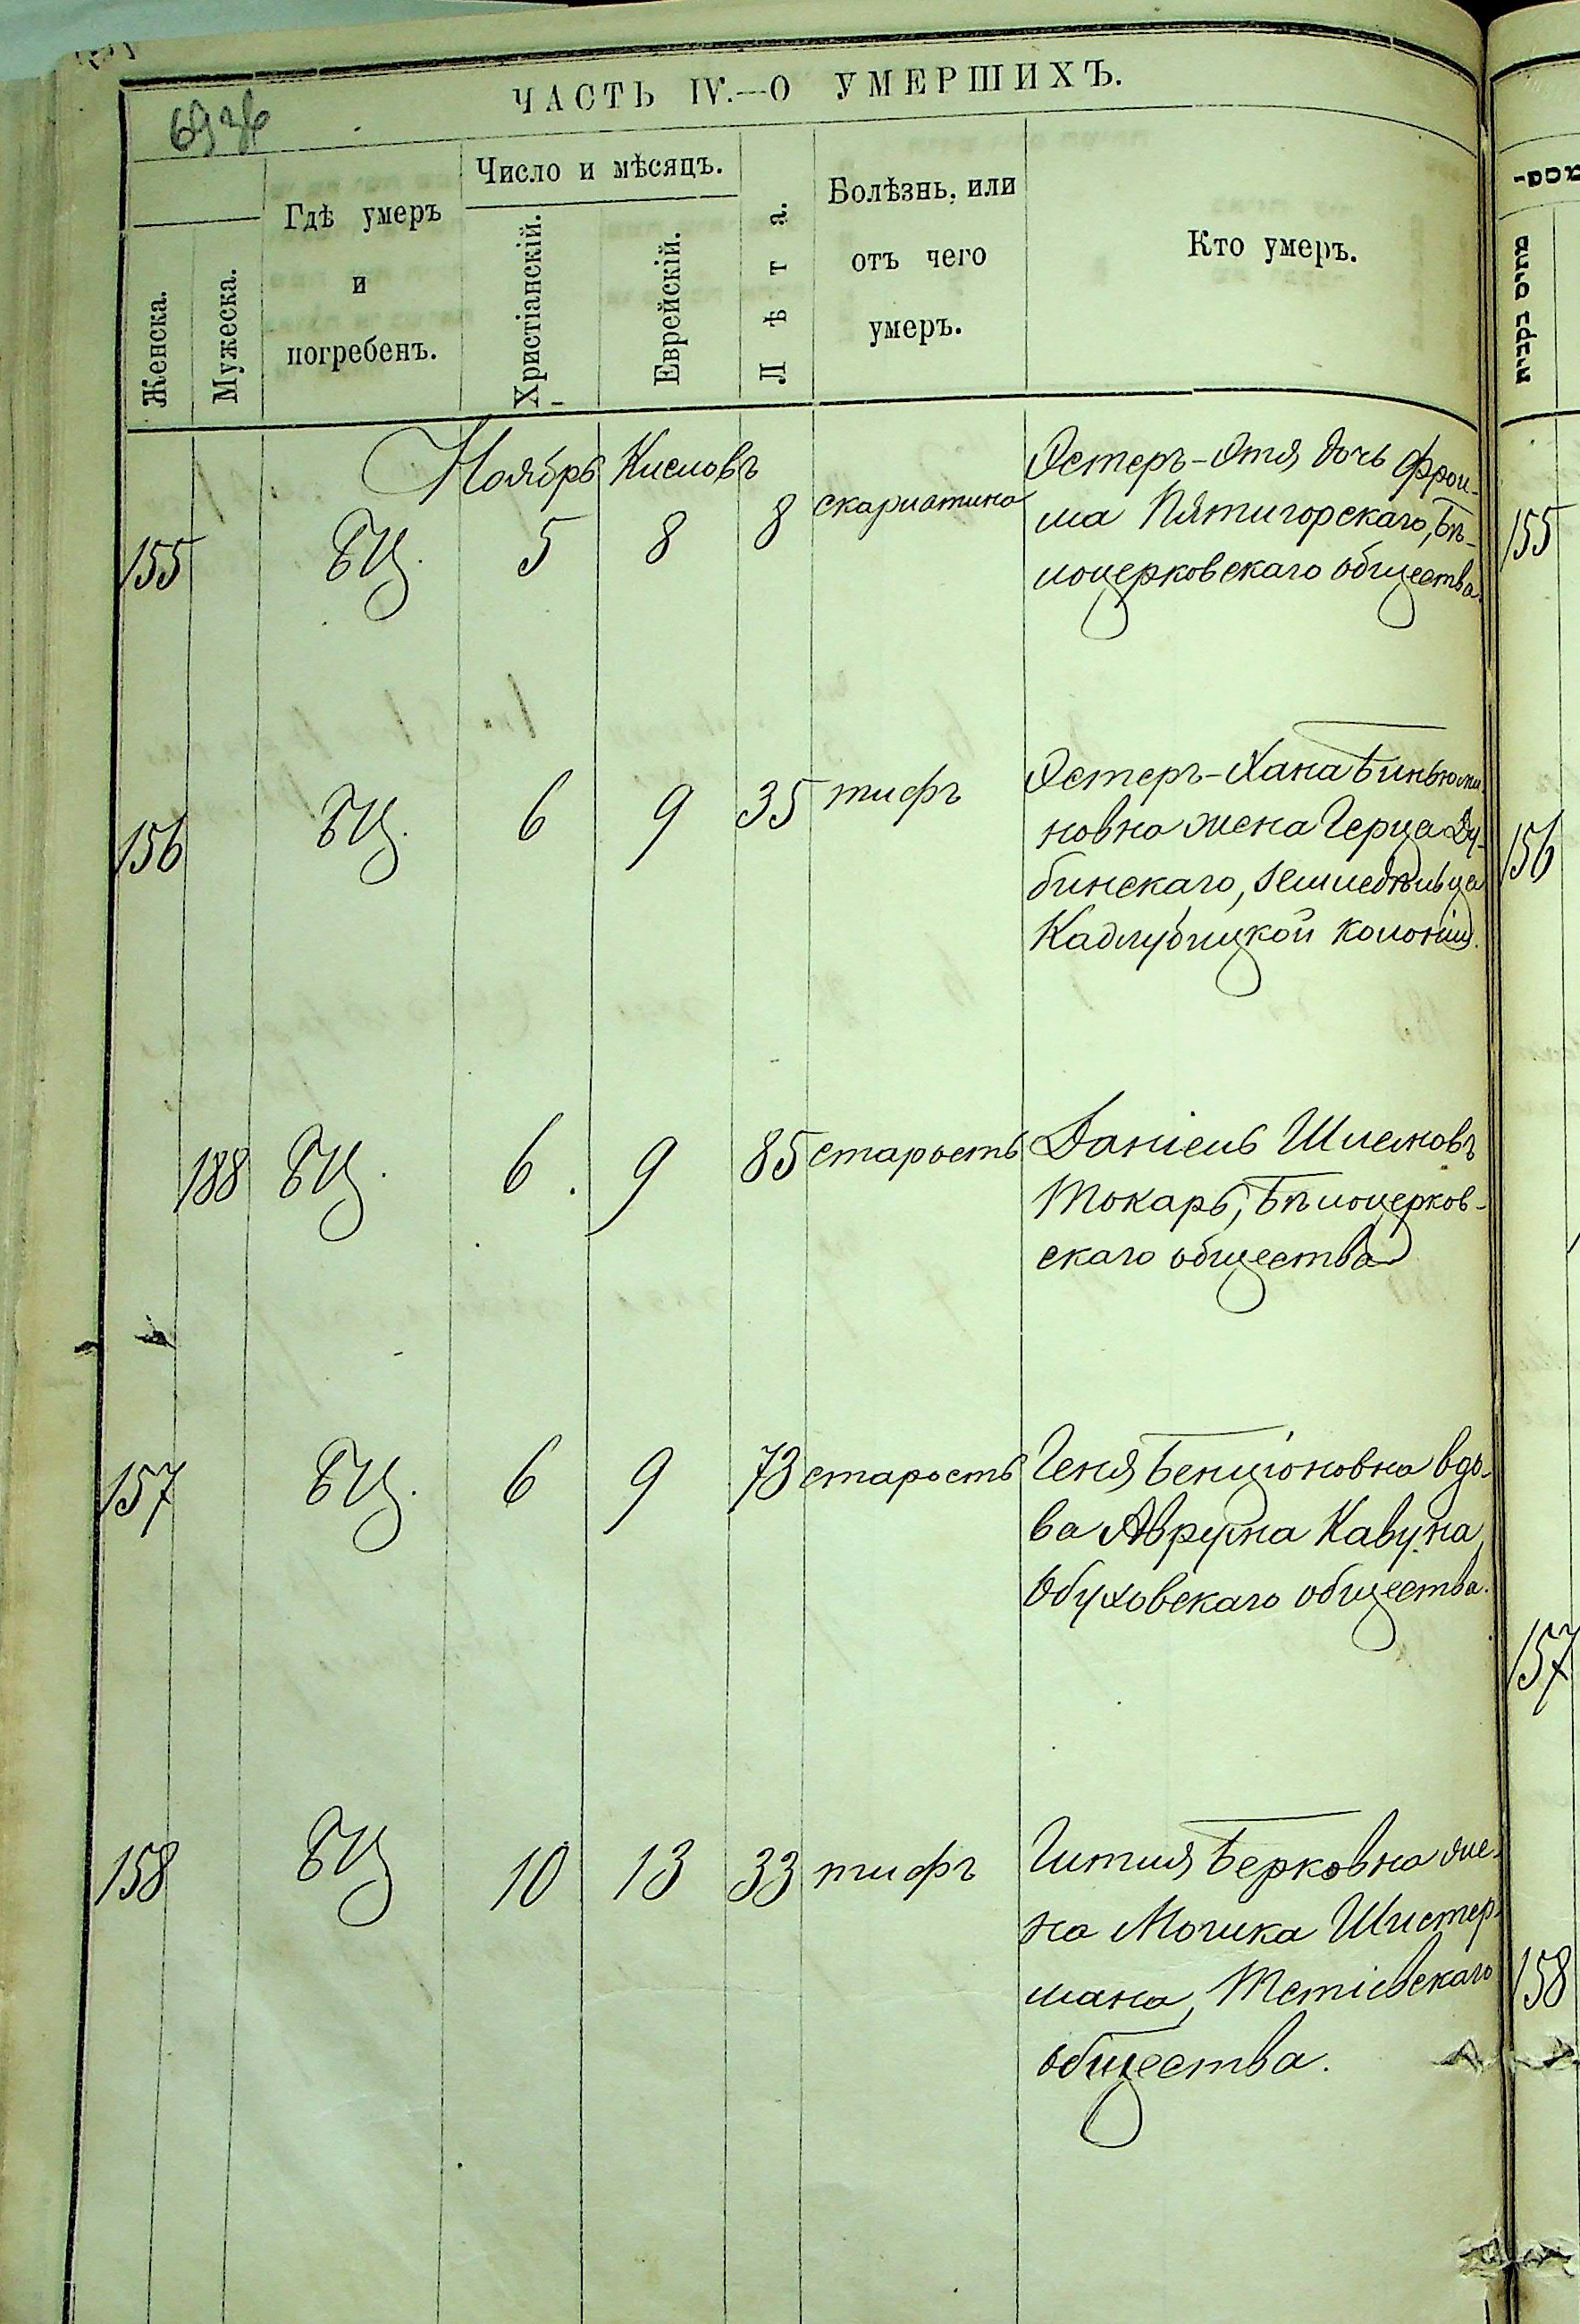 ЧАСТЬ IV.—О УМЕРШИХЪ.
Женска.
Мужеска.
Гдѣ умеръ
и
погребенъ.
Число и мѣсяцъ.
Христіанскій.
Еврейскій.
Лѣта.
Болѣзнь, или
отъ чего
умеръ.
Кто умеръ.
Ноябрь Кислевъ
155 БЦ. 5 8 8 скарлатина
Эстеръ-Этя дочь Фрои-
ма Пятигорскаго, Бѣ-
лоцерковскаго общества.
155
156 БЦ. 6 9 35 тифъ
Эстеръ-Хана Биньоми-
новна жена Герца Ду-
бинскаго, земледѣльца
Кадлубицкой колоніи.
156
188 БЦ. 6. 9 85 старость
Даніель Шлемовъ
Токарь, Бѣлоцерков-
скаго общества
157 БЦ. 6 9 73 старость
Геня Бенціоновна вдо-
ва Аврума Кавуна,
Обуховскаго общества.
157
158 БЦ 10 13 33 тифъ
Гитля Берковна же-
на Мошка Шистер-
мана, Тетіевскаго
общества.
158